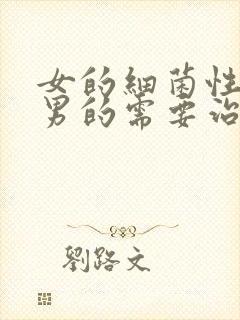 女的细菌性
男的需要治
劉路文